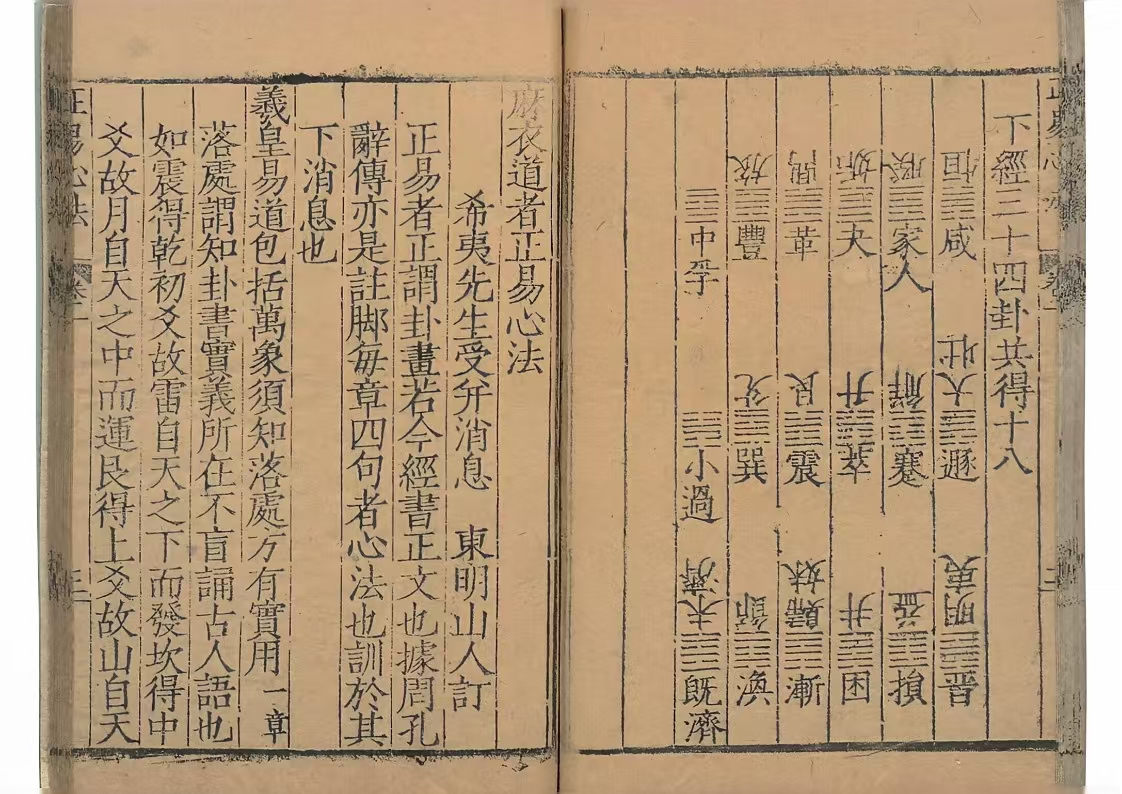 正易心法 卷一 二
下經三十四卦共得十八
恒 咸 大壯 遯 明夷 晉
睽 家人 解 蹇 益 損
姤 夬 升 萃 井 困
鼎 革 艮 震 歸妹 漸
旅 豐 兌 巽 節 渙
中孚 小過 未濟 既濟
麻衣道者正易心法
希夷先生受并消息 東明山人訂
正易者正謂卦畫若今經書正文也據周孔
辭傳亦是註脚每章四句者心法也訓於其
下消息也
羲皇易道包括萬象須知落處方有實用 一章
落處謂知卦書實義所在不盲誦古人語也
如震得乾初爻故雷自天之下而發坎得中
爻故月自天之中而運艮得上爻故山自天
正易心法 卷一 三